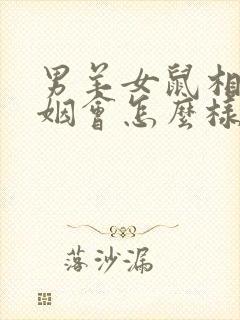 男羊女鼠相
姻會怎麼樣
落沙漏